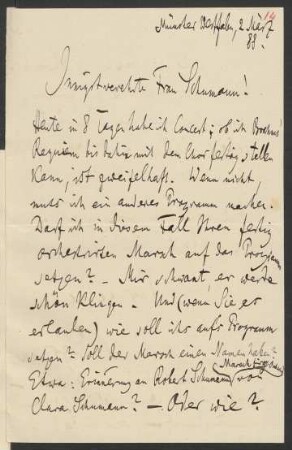 Münster Westfalen, 2 März
88.
Innigstverehrte Frau Schumann!
Heute in 8 Tagen habe ich Concert; ob ich Brahms'
Requiem bis dahin mit dem Chor fertig stellen
kann, ist zweifelhaft. Wenn nicht
muß ich ein anderes Programm machen.
Darf ich in diesem Fall Ihren fertig
orchestrirten Marsch auf das Programm
setzen? – Mir schwant, er werde
schön klingen. Und (wenn Sie es
erlauben) wie soll ichs aufs Programm
setzen? Soll der Marsch einen Namen haben?
Etwa: Erinnerung an Robert Schumann von
Clara Schumann? – Oder wie?